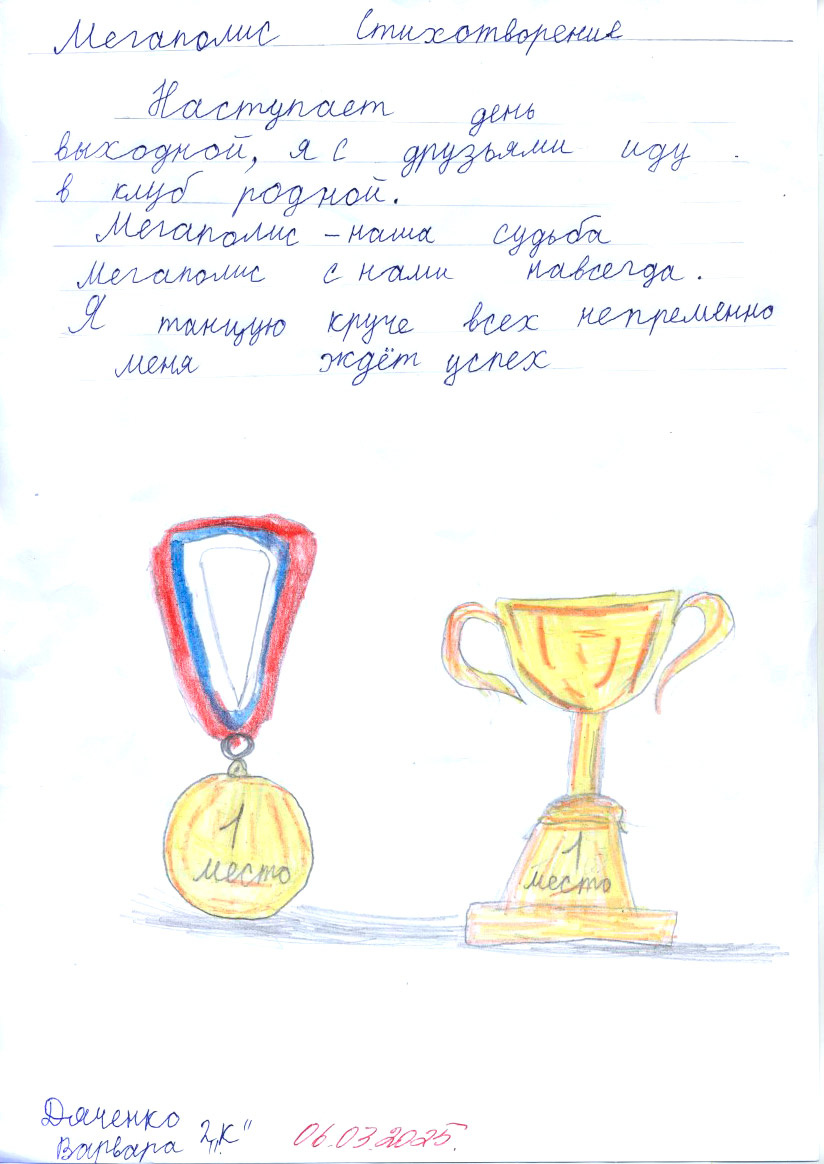 Мегаполис Стихотворение
Наступает день
выходной, я с друзьями иду
в клуб родной.
Мегаполис – наша судьба
Мегаполис с нами навсегда.
Я танцую круче всех непременно
меня ждёт успех
1
место
1
место
Дяченко
Варвара 2 „К"
06.03.2025.